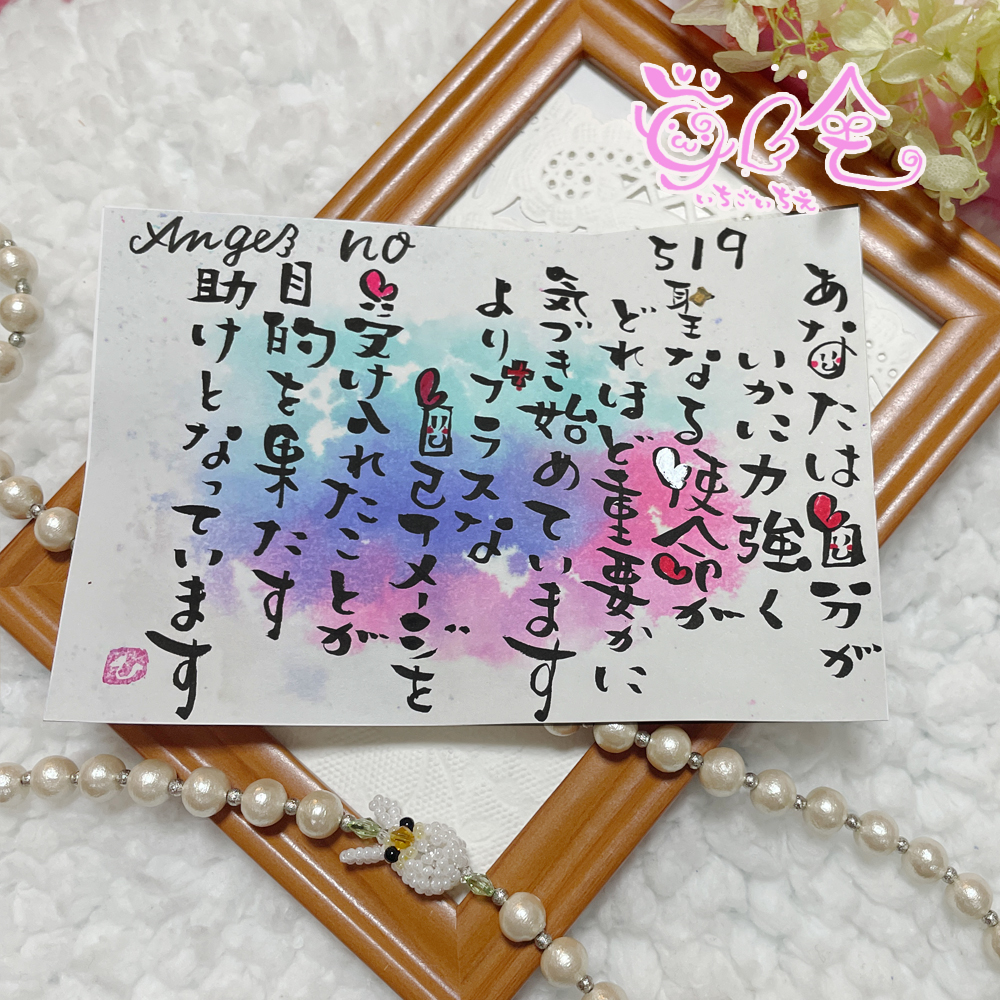 いちごいちえ
Angel no 519
あなたは自分が
いかに力強く
聖なる使命が
どれほど重要かに
気づき始めています
よりプラスな
自己イメージを
受け入れたことが
目的を果たす
助けとなっています